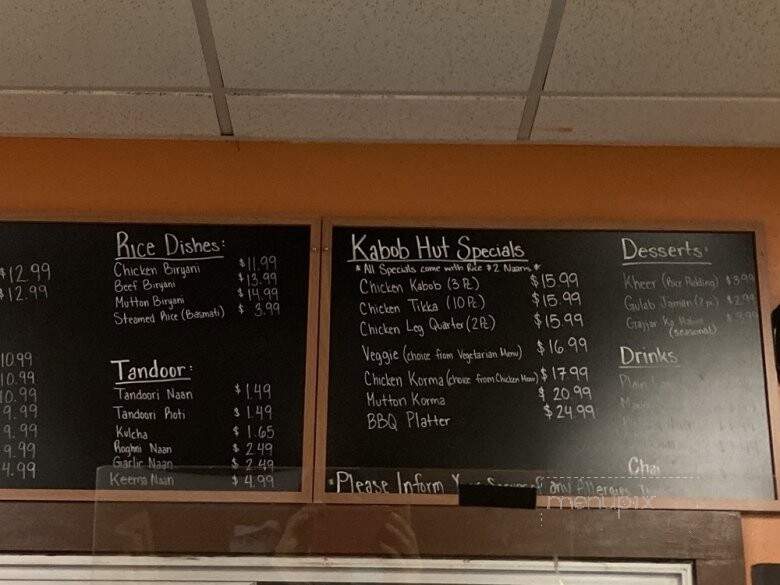 $12.99
$12.99
10.99
10.99
10.99
9.99
9.99
9.99
4.99
Rice Dishes:
Chicken Biryani $11.99
Beef Biryani $13.99
Mutton Biryani $14.99
Steamed Rice (Basmati) $ 3.99
Tandoor:
Tandoori Naan $1.49
Tandoori Roti $1.49
Kulcha $1.65
Roghni Naan $2.49
Garlic Naan $2.49
Keema Naan $4.99
Kabob Hut Specials
* All Specials come with Rice & 2 Naans *
Chicken Kabob (3 Pc) $15.99
Chicken Tikka (10 Pc) $15.99
Chicken Leg Quarter (2 Pc) $15.99
Veggie (choice from Vegetarian Menu) $16.99
Chicken Korma (choice from Chicken Menu) $17.99
Mutton Korma $20.99
BBQ Platter $24.99
*Please Inform Allergies
Desserts:
Kheer (Rice Pudding) $3.99
Gulab Jaman (2 pc) $2.99
Gajjar Ka
(seasonal)
Drinks
Plain
Chai
menupix